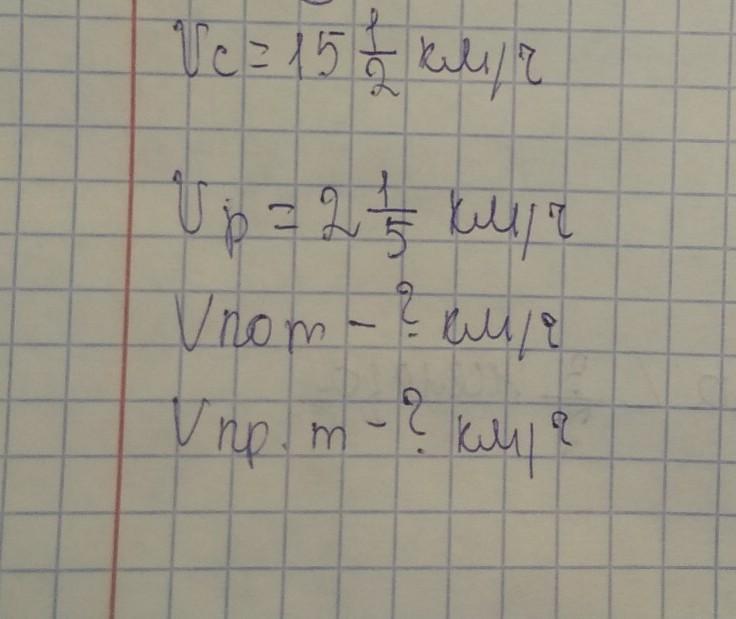 Vс = 15 1/2 км/ч
Vр = 2 1/5 км/ч
V по т - ? км/ч
V пр. т - ? км/ч